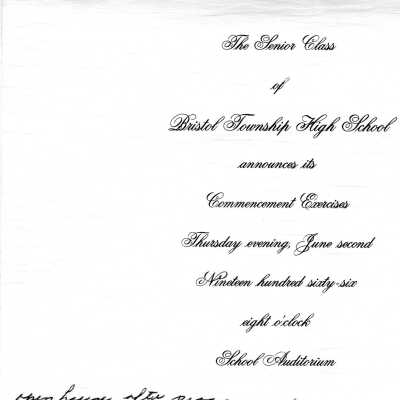 The Senior Class
of
Bristol Township High School
announces its
Commencement Exercises
Thursday evening, June second
Nineteen hundred sixty-six
eight o'clock
School Auditorium
open house after